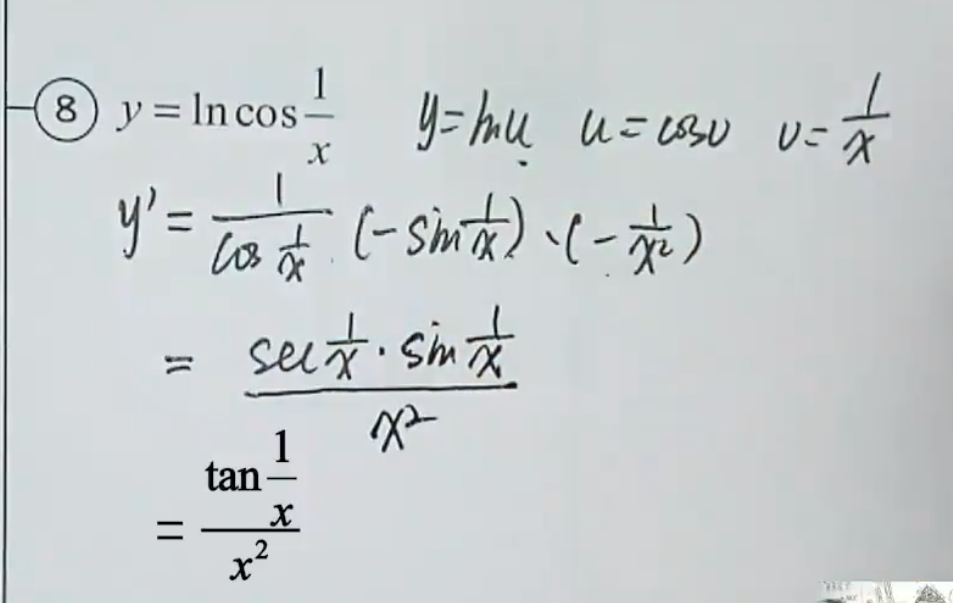 ⑧ y = ln cos 1/x   y = ln u   u = cos v   v = 1/x
y' = 1/(cos 1/x) (-sin 1/x) · (-1/x²)
= (sec 1/x · sin 1/x)/x²
= (tan 1/x)/x²